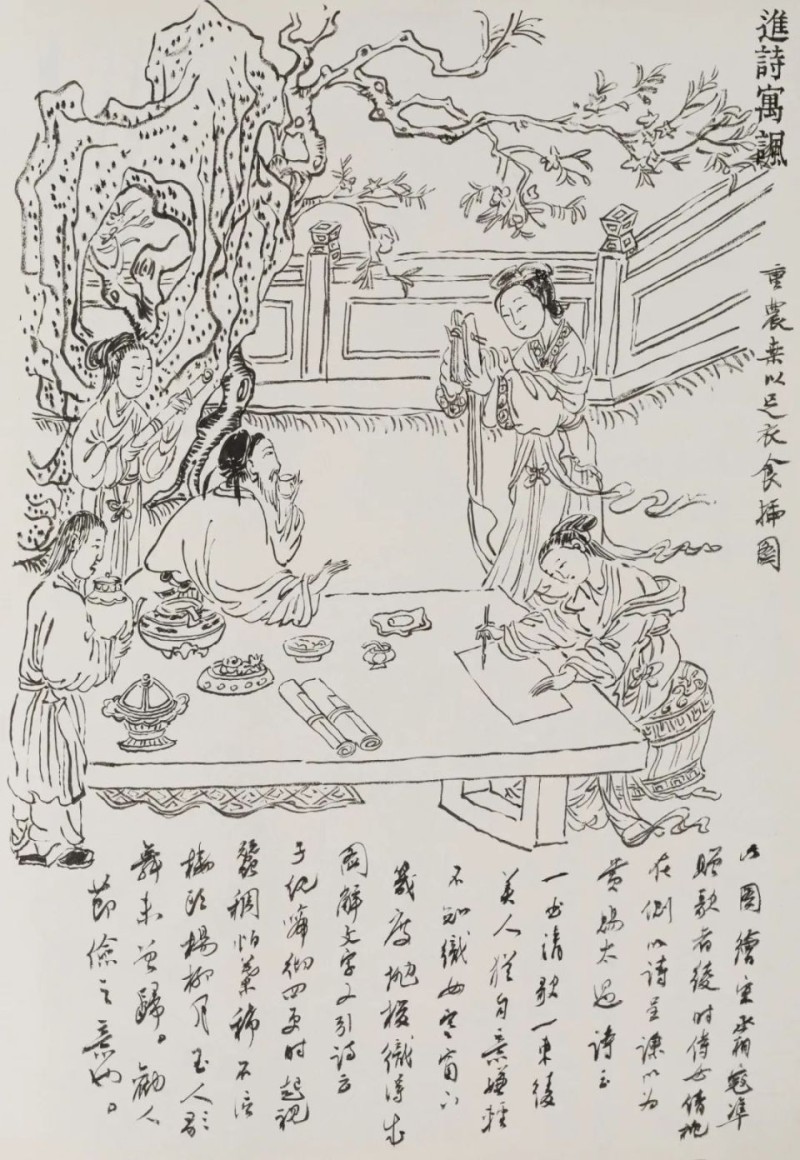 進詩寓諷
重農桑以足衣食插圖
此圖繪宋丞相寇準
贈歌者綾時侍女倩桃
在側以詩呈諫以为
賞賜太過詩云
一曲清歌一束綾
美人猶自意嫌輕
不知織女寒窗下
幾度拋梭織得成
图解文字又引詩云
子規啼彻四更時起視
蠶稠怕葉稀不信
樓頭楊柳月玉人歌
舞未曾歸。勸人
節儉之意也。